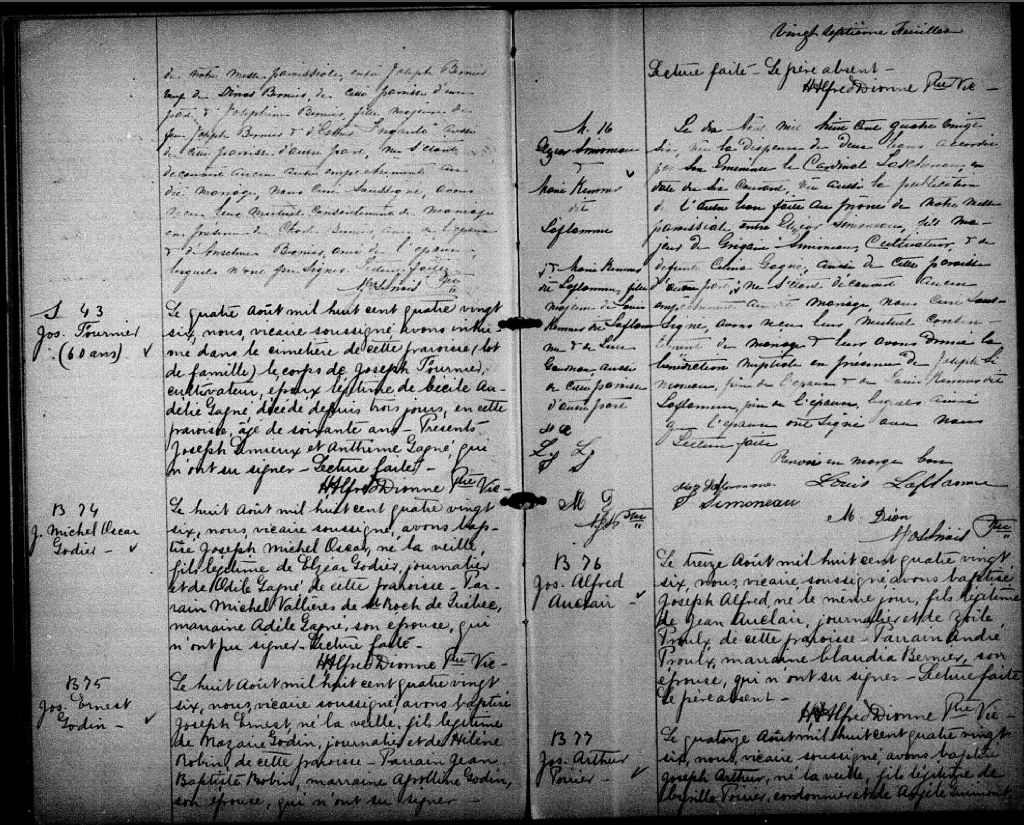 de notre messe paroissiale, entre Joseph Bernier
de cette paroisse d'une
part, & Joséphine Bernier, fille majeure de
feu Joseph Bernier & d'Esther aussi
de cette paroisse d'autre part, ne s'étant
découvert aucun autre empêchement au
dit mariage, nous curé soussigné, avons
reçu leur mutuel consentement de mariage
en présence de Bernier, ami de l'époux
& d'Anselme Bernier, ami de l'épouse
lesquels n'ont pu signer. Lecture faite
Ptre
S 43
Jos. Fournier
(60 ans)
Le quatre Août mil huit cent quatre vingt
six, nous, vicaire soussigné, avons inhu-
mé dans le cimetière de cette paroisse (lot
de famille) le corps de Joseph Fournier,
cultivateur, époux légitime de Cécile Au-
délie Gagné, décédé depuis trois jours, en cette
paroisse, âgé de soixante ans - Présents
Joseph Lemieux et Anthime Gagné, qui
n'ont su signer - Lecture faite -
HAlfred Dionne Ptre Vic -
B 74
J. Michel Oscar
Godier -
Le huit Août mil huit cent quatre vingt
six, nous, vicaire soussigné, avons bap-
tisé Joseph Michel Oscar, né la veille,
fils légitime de Elzéar Godier, journalier
et de Odile Gagné de cette paroisse - Par-
rain Michel Vallières de St Roch de Québec,
marraine Adèle Gagné, son épouse, qui
n'ont pu signer - Lecture faite -
HAlfred Dionne Ptre Vic -
B 75
Jos. Ernest
Godin -
Le huit Août mil huit cent quatre vingt
six, nous, vicaire soussigné, avons baptisé
Joseph Ernest, né la veille, fils légitime
de Nazaire Godin, journalier et de Hélène
Robin, de cette paroisse - Parrain Jean
Baptiste Robin, marraine Apolline Godin,
son épouse, qui n'ont su signer -
Vingt septième Feuillet
Lecture faite - Le père absent -
HAlfred Dionne Ptre Vic -
M. 16
Elzéar Simoneau
&
Marie Kemmer
dit
Laflamme
& Marie Kemmer
dit Laflamme, fille
majeure de Louis
Kemmer dit Laflam
me & de
aussi
de cette paroisse
d'autre part
Le dix Août mil huit cent quatre vingt
six, vu la dispense de deux bans accordée
par Son Eminence le Cardinal Taschereau, en
date du six courant, vu aussi la publication
de l'autre ban faite au prône de notre messe
paroissiale entre Elzéar Simoneau, fils ma-
jeur de Simoneau, Cultivateur, & de
défunte Gagné, aussi de cette paroisse
d'une part; ne s'étant découvert aucun
empêchement au dit mariage, nous curé sous-
signé, avons reçu leur mutuel consen-
tement de mariage & leur avons donné la
bénédiction nuptiale en présence de Joseph Si-
moneau, père de l'époux & de Louis Kemmer dit
Laflamme, père de l'épouse, lesquels ainsi
que l'épouse ont signé avec nous
Lecture faite
Renvoi en marge bon
Laflamme Louis Laflamme
J Simoneau
M. Dion
Ptre
B 76
Jos. Alfred
Auclair -
Le treize Août mil huit cent quatre vingt
six, nous, vicaire soussigné, avons baptisé
Joseph Alfred, né le même jour, fils légitime
de Jean Auclair, journalier et de Zoïle
Proulx, de cette paroisse - Parrain André
Proulx, marraine Claudia Bernier, son
épouse, qui n'ont su signer - Lecture faite
Le père absent -
HAlfred Dionne Ptre Vic -
B 77
Jos. Arthur
Poirier -
Le quatorze Août mil huit cent quatre vingt
six, nous, vicaire soussigné, avons baptisé
Joseph Arthur, né la veille, fils légitime de
Cyrille Poirier, cordonnier et de Angèle Guimont,